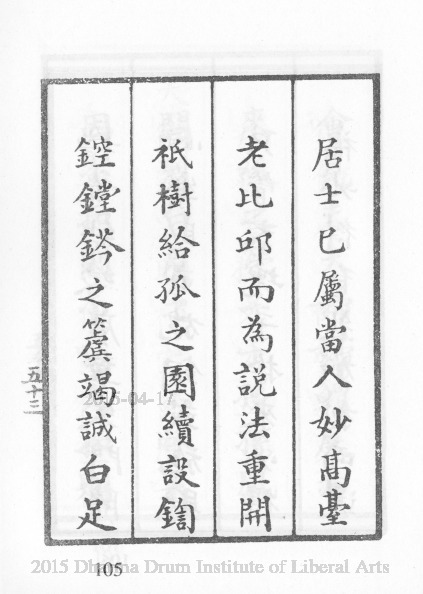 居士已屬當人妙高臺
老比邱而為説法重開
祇樹給孤之園續設鍧
鏗鏜鎝之簴竭誠白足
五十三
2015-04-17
105
2015 Dharma Drum Institute of Liberal Arts